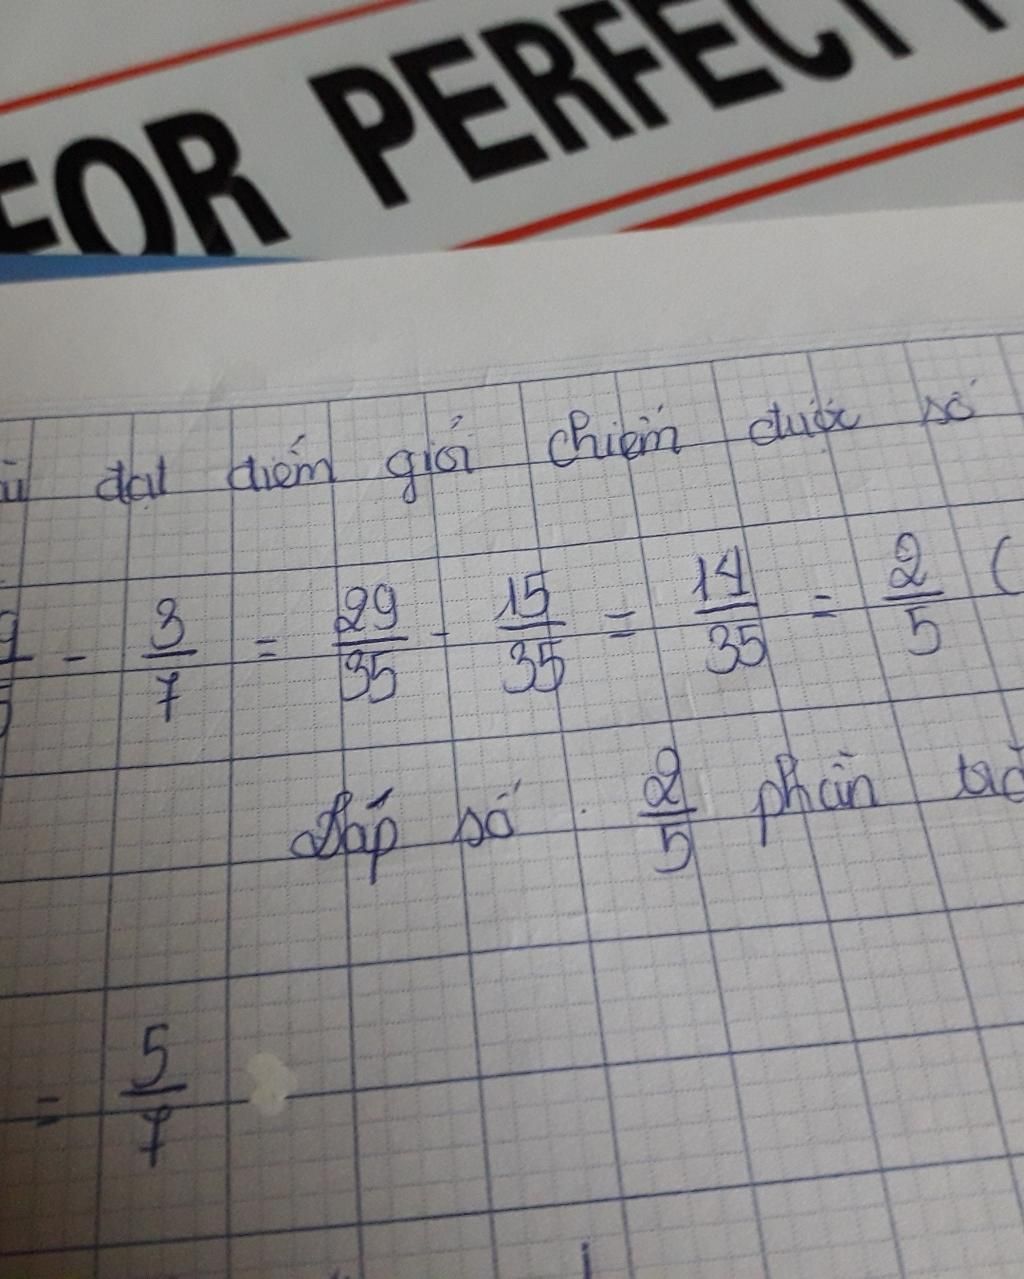 FOR PERFECT
đạt điểm giỏi chiếm được số
- 3/7 = 29/35 - 15/35 = 14/35 = 2/5 (
Đáp số : 2/5 phần
= 5/7